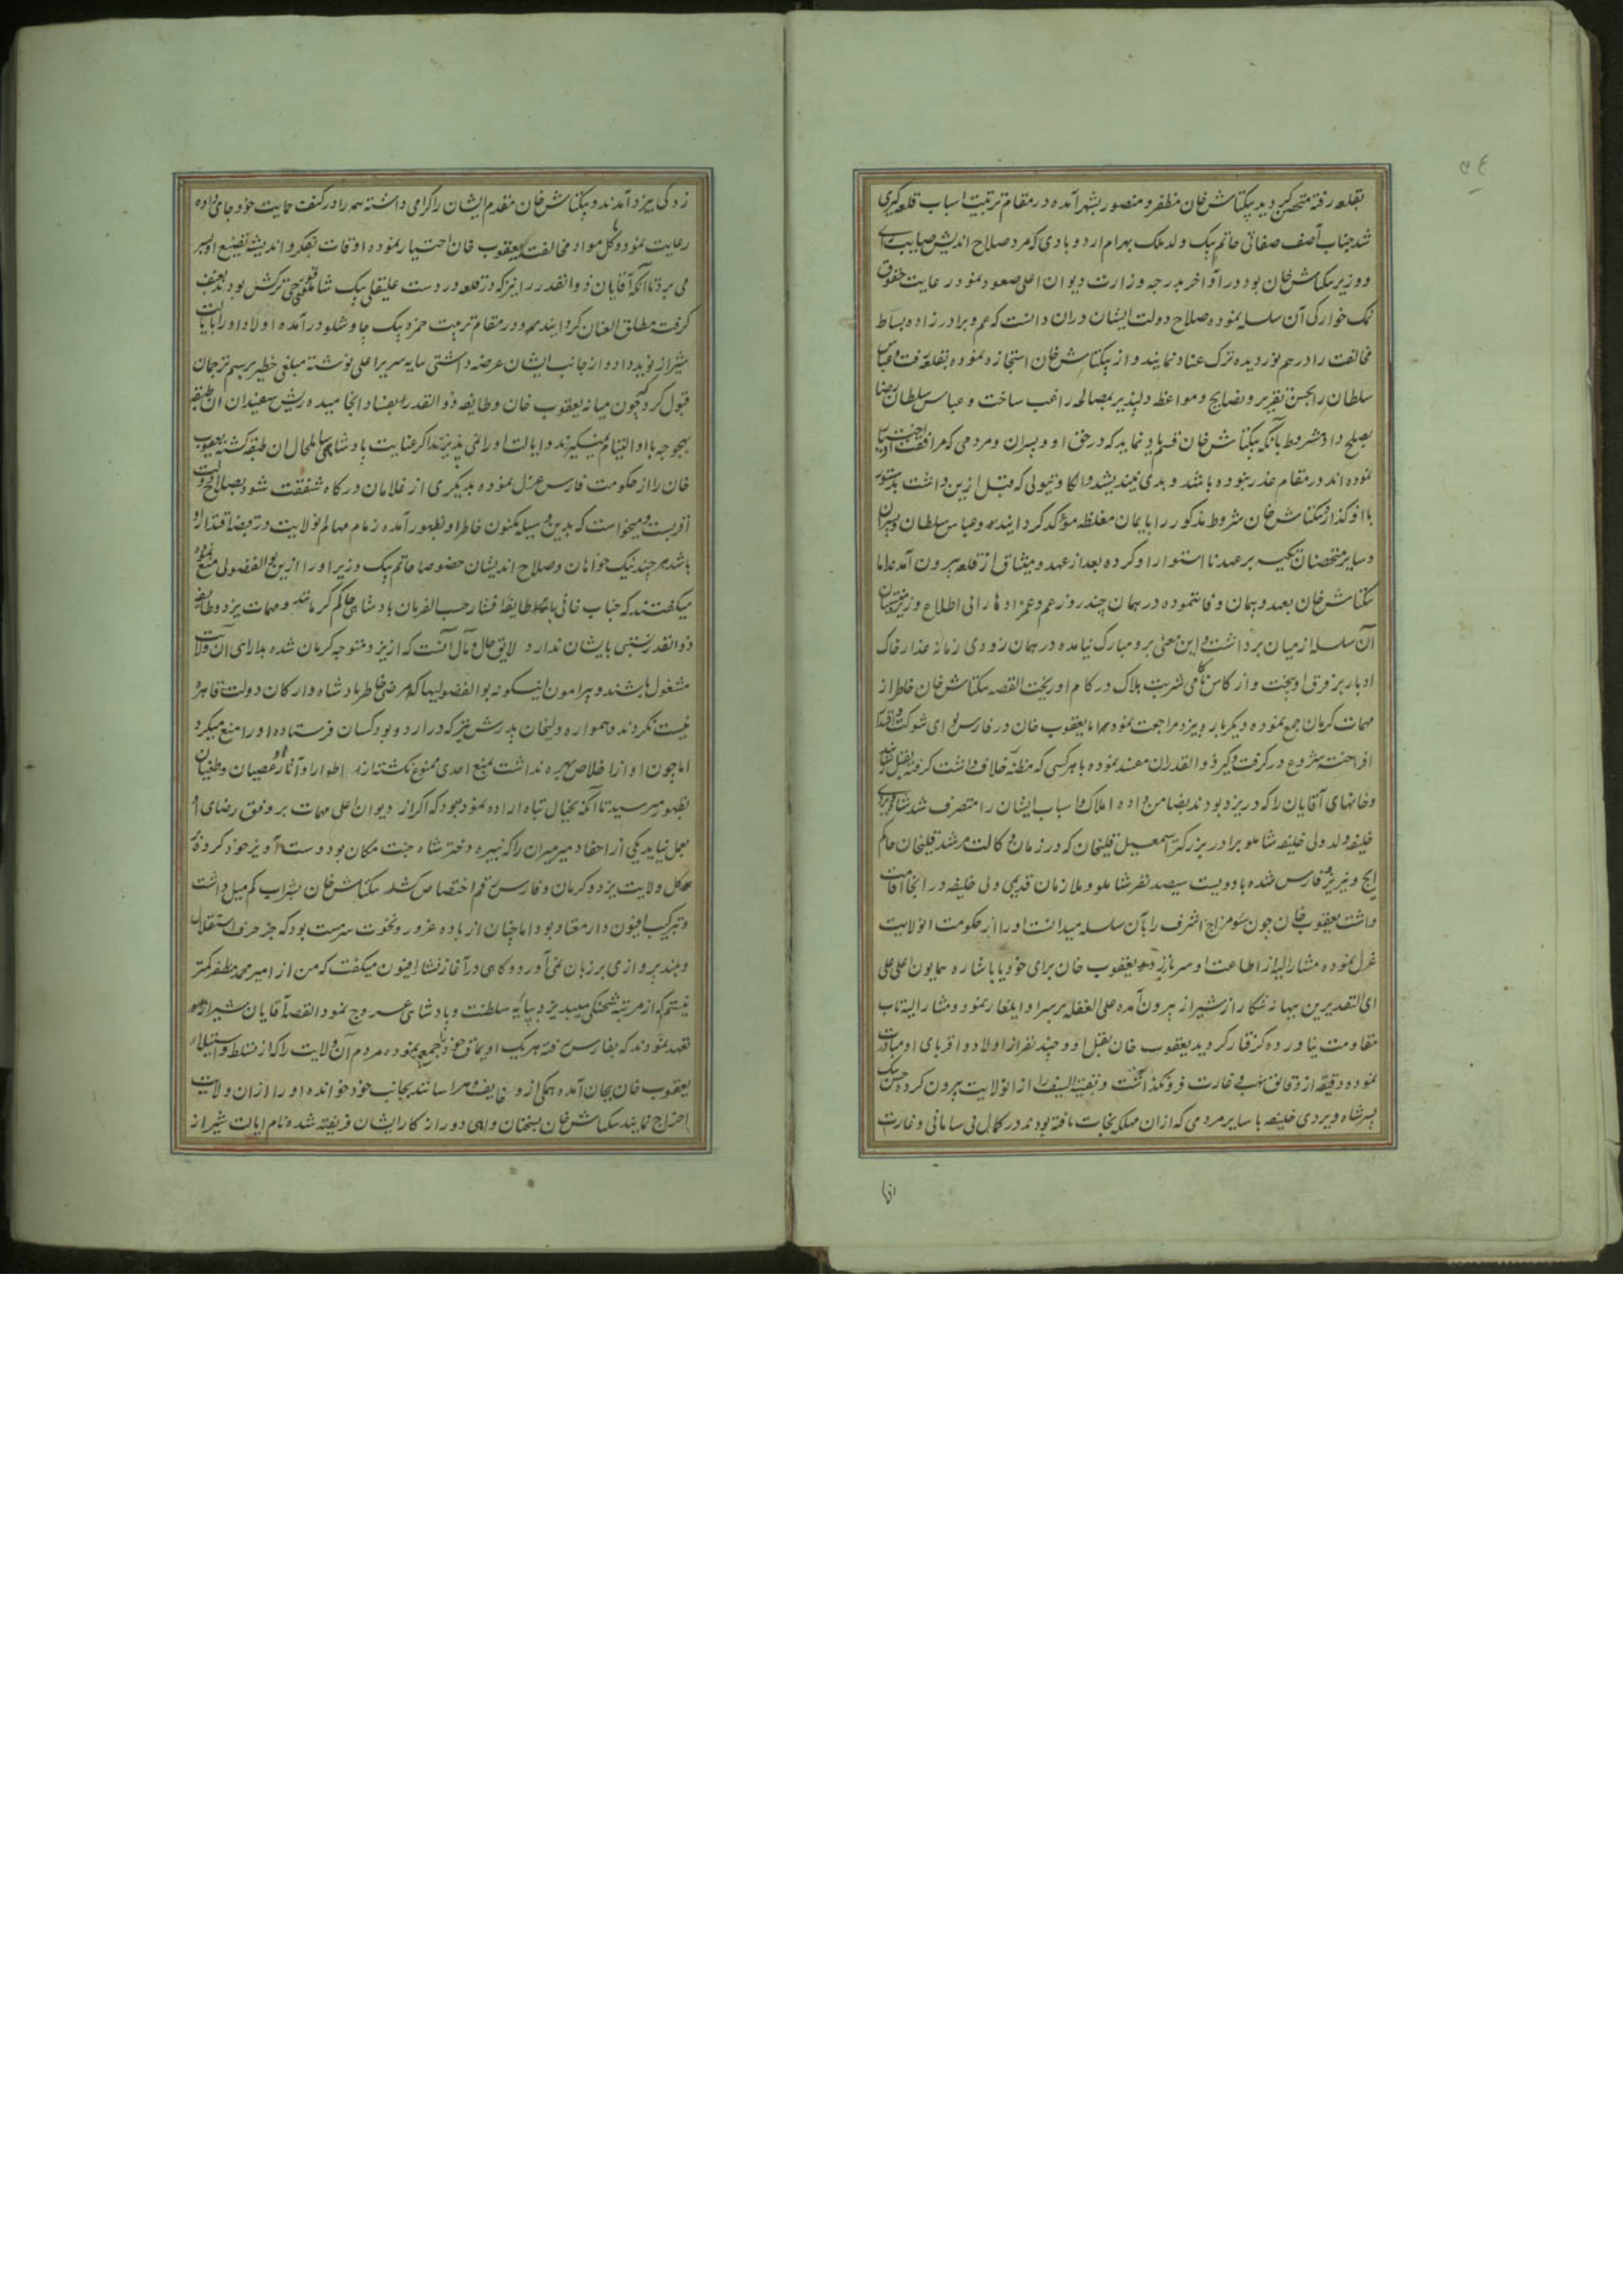 بقلعه رفته متحصن گردید بیکتاش خان مظفر و منصور بشهر آمده در مقام ترتیب اسباب قلعه گیری
شد جناب آصف صفاتی حاتم بیک ولد ملک بهرام اردوبادی که مرد صلاح اندیش صایب رای
و وزیر بکتاش خان بود و در اواخر بدرجه وزارت دیوان اعلی صعود نمود رعایت حقوق
نمک خوارگی آن سلسله نموده صلاح دولت ایشان دران دانست که عم و برادرزاده بساط
مخالفت را درهم نوردیده ترک عناد نمایند و از بیکتاش خان استجازه نموده بقلعه رفت و عباس
سلطان را بحسن تقریر و نصایح و مواعظ دلپذیر بمصالحه راغب ساخت و عباس سلطان رضا
بصلح داد مشروط بآنکه بیکتاش خان قسم یاد نماید که در حق او و پسران و مردمی که مرافقت او اختیار
نموده اند در مقام غدر نبوده باشد و بدی نیندیشد و الکا و تیولی که قبل ازین داشت بدستور
باو گذارد بکتاش خان شروط مذکور را بایمان مغلظه مؤکد گردانیده و عباس سلطان و پسران
و سایر متحصنان تکیه بر عهد نا استوار او کرده بعد از عهد و میثاق از قلعه بیرون آمدند اما
بکتاش خان بعهد و پیمان وفا ننموده در همان چند روز عم و عمزادها را بی اطلاع وزیر
آن سلسله از میان برداشت و این معنی برو مبارک نیامده در همان زودی زمانه غدار خاک
ادبار بر فرق او بیخت و از کاس ناکامی شربت هلاک در کام او ریخت القصه بکتاش خان خاطر از
مهمات کرمان جمع نموده دیگر بار بیزد مراجعت نمود اما یعقوب خان در فارس لوای شوکت و اقتدار
افراخته شروع در گرفت و گیر ذوالقدران مفسد نموده با هر کسی که مظنه خلاف داشت گرفته بقتل رسانید
و خانهای آقایان را که در یزد بودند بضامن داده املاک و اسباب ایشان را متصرف شد شاه ویردی
خلیفه ولد ولی خلیفه شاملو برادر بزرگتر اسمعیل قلیخان که در زمان وکالت مرشد قلیخان حاکم
ایج و نیریز فارس شده با دویست سیصد نفر شاملو و ملازمان قدیمی ولی خلیفه در انجا اقامت
داشت یعقوب خان چون سوء مزاج اشرف را بآن سلسله میدانست او را از حکومت انولایت
عزل نموده مشار الیه از اطاعت او سر باز زد و یعقوب خان برای خود یا باشاره همایون اعلی علی
ای التقدیرین ببهانه شکار از شیراز بیرون آمده علی الغفله بر سر او ایلغار نمود و مشار الیه تاب
مقاومت نیاورده گرفتار گردید یعقوب خان بقتل او و چند نفر از اولاد و اقربای او مبادرت
نموده دقیقه از دقایق نهب و غارت فرو نگذاشت و بقیة السیف را از انولایت بیرون کرده حسن بیک
پسر شاه ویردی خلیفه با سایر مردمی که ازان مهلکه نجات یافته بودند در کمال بی سامانی و غارت
زدگی بیزد آمدند و بیکتاش خان مقدم ایشان را گرامی داشته همه را در کنف حمایت خود جای داده
رعایت نمود و کل مواد مخالفت با یعقوب خان اختیار نموده اوقات بتفکر و اندیشه تضییع او بسر
می برد تا آنکه آقایان ذوالقدر را نیز که در قلعه در دست علیقلی بیک شاملو قورچی ترکش بود بعنف
گرفت مطلق العنان گردانیده و در مقام تربیت حمزه بیک چاوشلو درآمده اولاد او را بایالت
شیراز نوید داد و از جانب ایشان عرضه داشتی بپایه سریر اعلی نوشته مبلغی خطیر برسم ترجمان
قبول کرد که چون میانه یعقوب خان و طایفه ذوالقدر بفساد انجامیده ریش سفیدان ان طبقه
بهیچوجه با او التیام نمیگیرند و ایالت او را نمی پذیرند اگر عنایت پادشاهی شامل حال ان طبقه گشته یعقوب
خان را از حکومت فارس عزل نموده بدیگری از غلامان درگاه شفقت شود بصلاح دولت
اقربست و میخواست که بدین وسیله مکنون خاطر او بظهور آمده زمام مهام انولایت در قبضه اقتدار او
باشد هر چند نیک خواهان و صلاح اندیشان خصوصا حاتم بیک وزیر او را ازین بوالفضولی منع نموده
میگفتند که جناب خانی با طایفه افشار حسب الفرمان پادشاهی حاکم کرمانند و مهمات یزد و طایفه
ذوالقدر نسبتی بایشان ندارد لایق حال و مآل آنست که از یزد متوجه کرمان شده بدارایی آن ولایت
مشغول باشند و پیرامون اینگونه بوالفضولیها که مرضی خاطر پادشاه و ارکان دولت قاهره
نیست نگردند و همواره ولیخان پدرش نیز که در اردو بود کسان فرستاده او را منع میکرد
اما چون او از اخلاص بهره نداشت بمنع احدی ممنوع نگشته از اطوار او آثار عصیان و طغیان
بظهور میرسید تا آنکه بخیال تباه اراده نمود بود که اگر از دیوان اعلی مهمات بر وفق رضای او
بعمل نیاید یکی از احفاد میرمیران را که نبیره دختر شاه جنت مکان بود دست آویز خود کرده
کل ولایت یزد و کرمان و فارس اختصاص بکتاش خان بشراب کم میل داشت
و بترکیب افیون دار معتاد بود اما چنان از باده غرور و نخوت سرمست بود که جز حرف استقلال
و بلند پروازی بر زبان نمی آورد و گاهی در آغاز نشاء افیون میگفت که من از امیر محمد مظفر کمتر
نیستم که از مرتبه شحنگی میبد یزد بپایه سلطنت و پادشاهی عروج نمود القصه آقایان شیراز
تعهد نمودند که بفارس رفته هریک اویماق خود را جمع نموده مردم آن ولایت را که از تسلط و استیلاء
یعقوب خان بجان آمده همگی ازو خایف و هراسانند بجانب خود خوانده او را ازان ولایت
اخراج نمایند بکتاش خان بسخنان واهی دور از کار ایشان فریفته شده نام ایالت شیراز